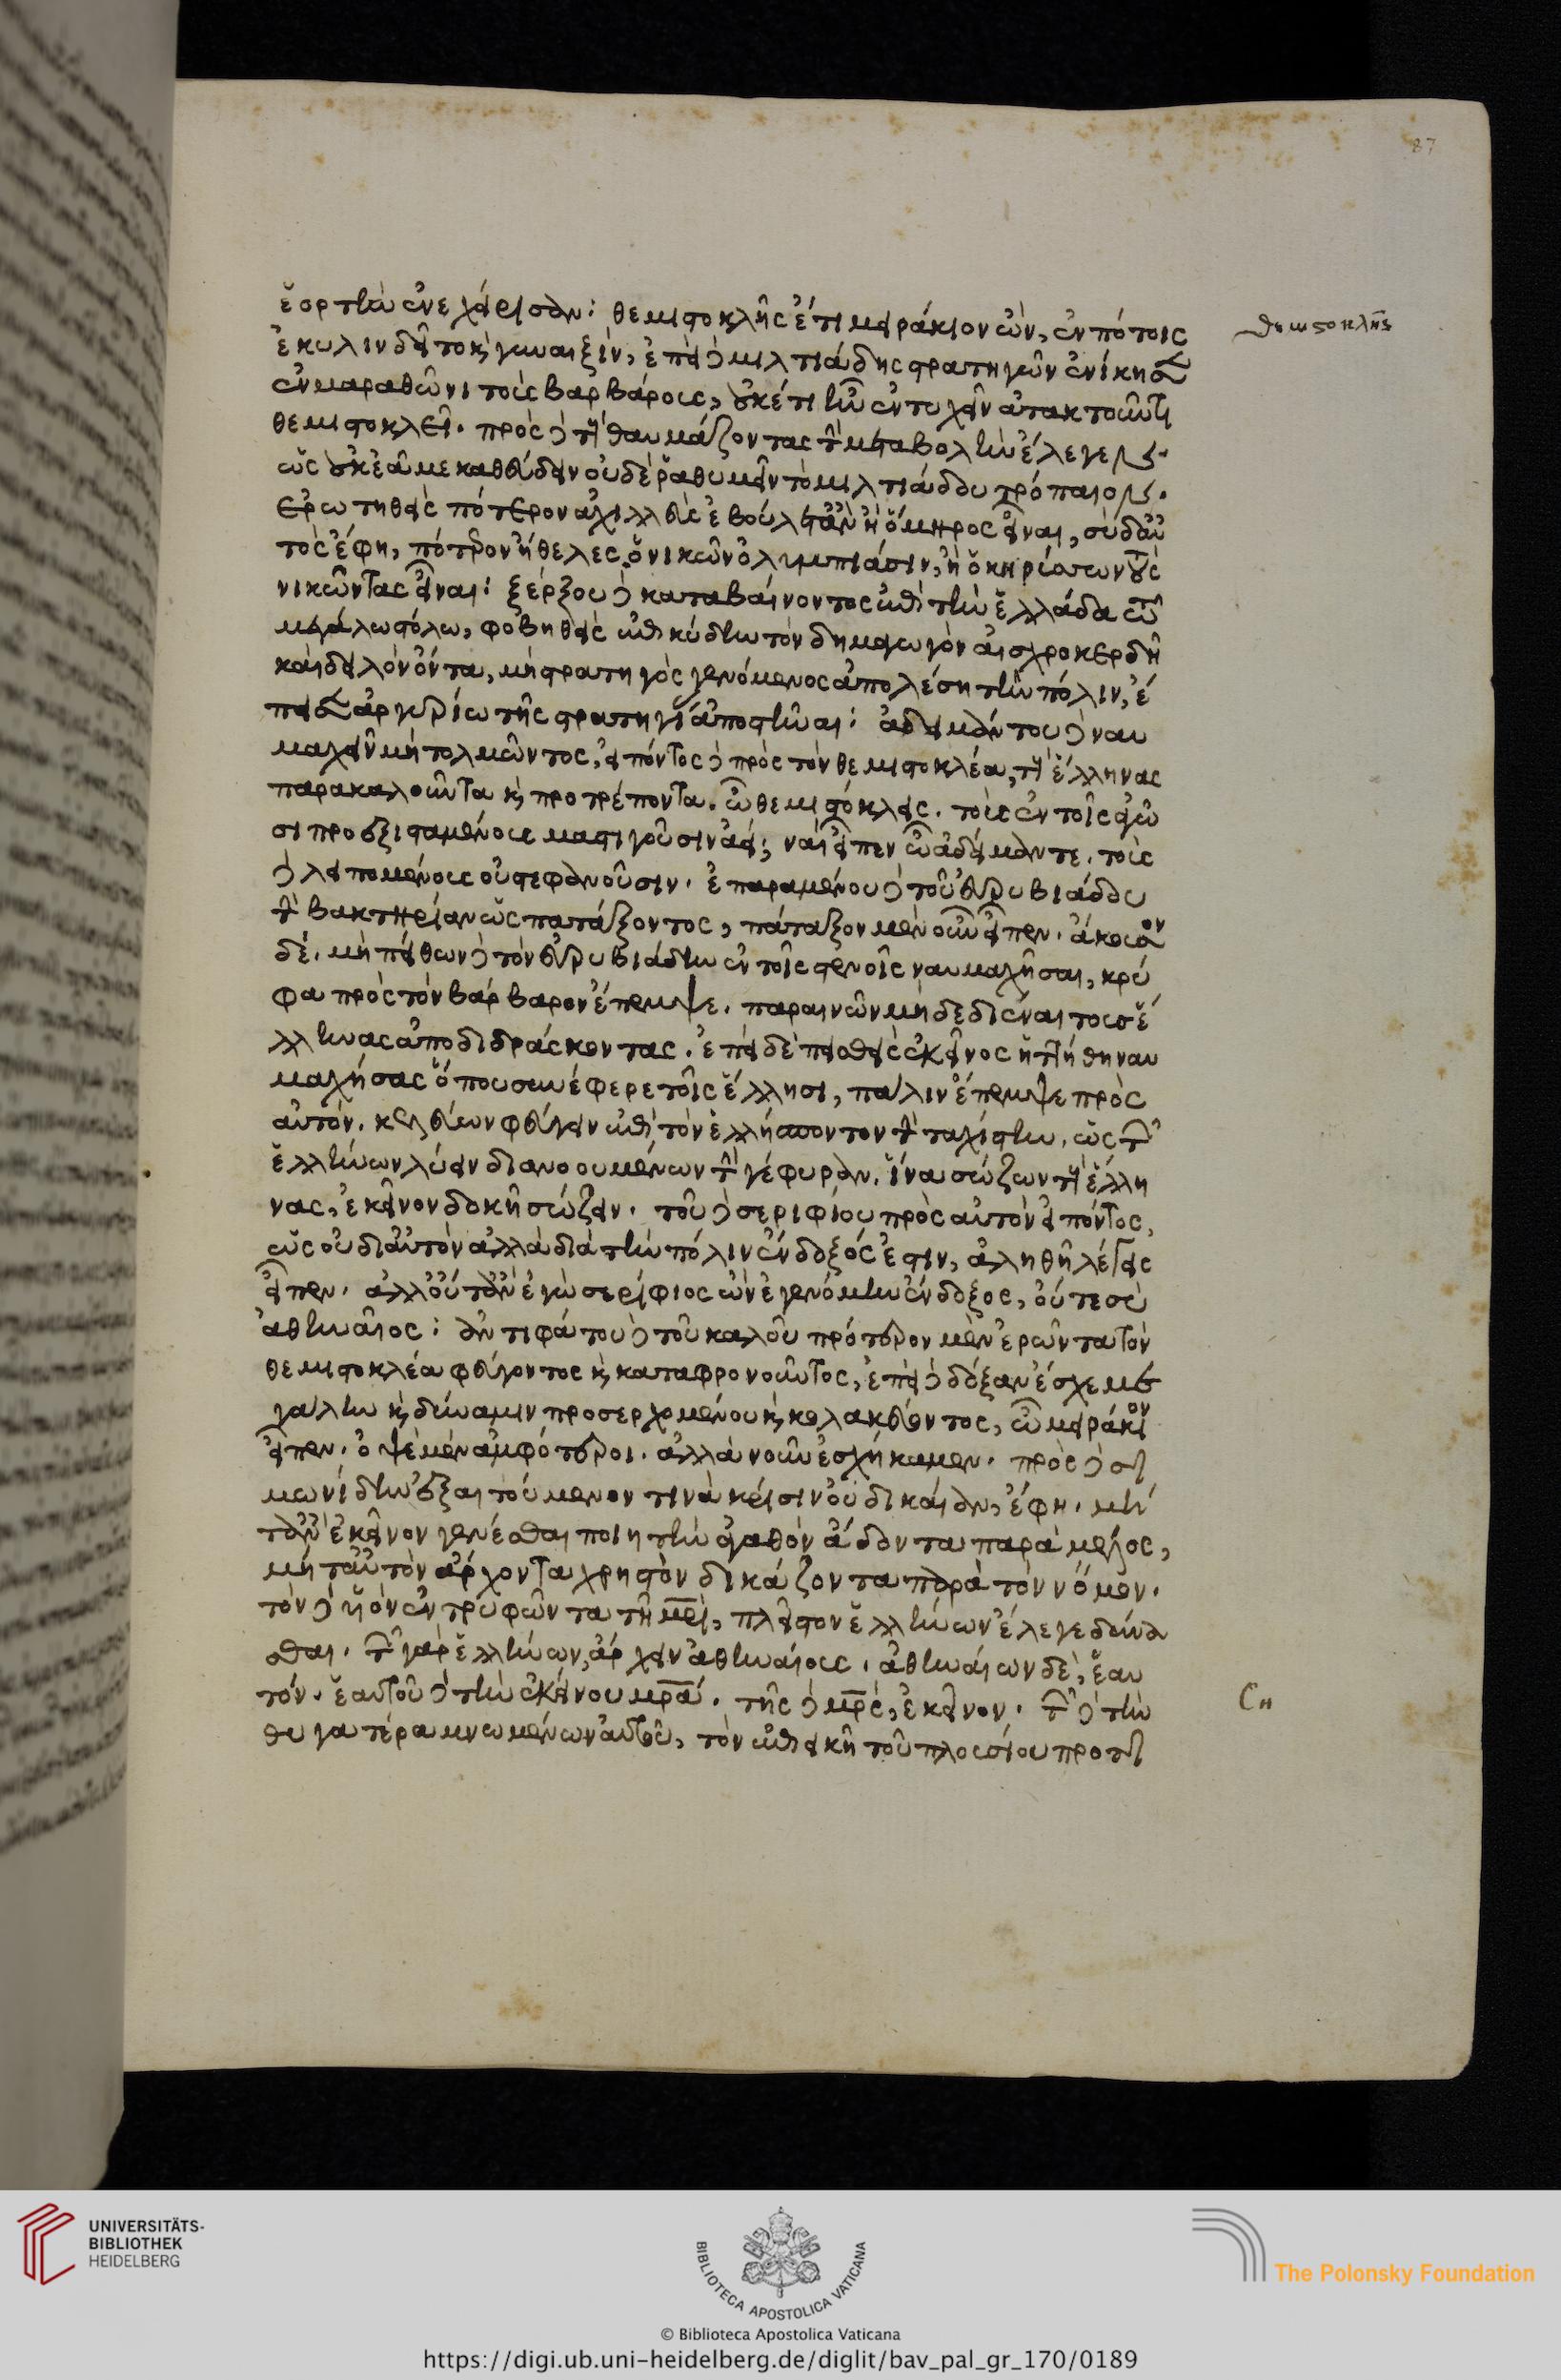 87
ἑορτὴν ἐνεχάρισαν: θεμιστοκλῆς ἔτι μειράκιον ὢν, ἐν πότοις
θεμιστοκλῆς
ἐκυλινδεῖτο καὶ γυναιξὶν, ἐπεὶ δὲ μιλτιάδης στρατηγῶν ἐνίκησεν
ἐν μαραθῶνι τοὺς βαρβάρους, οὐκέτι ἦν ἐντυχεῖν ἀτακτοῦντι
θεμιστοκλεῖ. πρὸς δὲ τοὺς θαυμάζοντας τὴν μεταβολὴν ἔλεγεν.
ὡς οὐκ ἐᾷ με καθεύδειν οὐδὲ ῥαθυμεῖν τὸ μιλτιάδου τρόπαιον.
ἐρωτηθεὶς πότερον ἀχιλλεὺς ἐβούλετ' ἂν ἢ ὅμηρος εἶναι, σὺ δ' αὐ
τὸς ἔφη, πότερον ἤθελες ὁ νικῶν ὀλυμπιάσιν, ἢ ὁ κηρύσσων τοὺς
νικῶντας εἶναι: ξέρξου δὲ καταβαίνοντος ἐπὶ τὴν ἑλλάδα σὺν τῷ
μεγάλω στόλω, φοβηθεὶς ἐπικύδην τὸν δημαγωγὸν αἰσχροκερδῆ
καὶ δειλὸν ὄντα, μὴ στρατηγὸς γενόμενος ἀπολέση τὴν πόλιν, ἔ
πεισεν ἀργυρίω τῆς στρατηγίας ἀποστῆναι: ἀδειμάντου δὲ ναυ
μαχεῖν μὴ τολμῶντος, εἰπόντος δὲ πρὸς τὸν θεμιστοκλέα, τοὺς ἕλληνας
παρακαλοῦντα καὶ προτρέποντα. ὦ θεμιστόκλεις. τοὺς ἐν τοῖς ἀγῶ
σι προεξισταμένους μαστιγοῦσιν ἀεί; ναὶ εἶπεν ὦ ἀδείμαντε. τοὺς
δὲ λειπομένους οὐ στεφανοῦσιν. ἐπαραμένου δὲ τοῦ εὐρυβιάδου
τὴν βακτηρίαν ὡς πατάξοντος, πάταξον μὲν οὖν εἶπεν. ἄκουσον
δέ. μὴ πείθων δὲ τὸν εὐρυβιάδην ἐν τοῖς στενοῖς ναυμαχῆσαι, κρύ
φα πρὸς τὸν βάρβαρον ἔπεμψε. παραινῶν μὴ δεδιέναι τοὺς ἕ
λληνας ἀποδιδράσκοντας. ἐπεὶ δὲ πεισθεὶς ἐκεῖνος ἡττήθη ναυ
μαχήσας ὅπου συνέφερε τοῖς ἕλλησι, πάλιν ἔπεμψε πρὸς
αὐτόν. κελεύων φεύγειν ἐπὶ τὸν ἑλλήσποντον τὴν ταχίστην. ὡς τῶν
ἑλλήνων λύειν διανοουμένων τὴν γέφυραν. ἵνα σώζων τοὺς ἕλλη
νας, ἐκεῖνον δοκῆ σώζειν. τοῦ δὲ σεριφίου πρὸς αὐτὸν εἰπόντος,
ὡς οὐ δι' αὐτὸν ἀλλὰ διὰ τὴν πόλιν ἔνδοξός ἐστιν, ἀληθῆ λέγεις
εἶπεν. ἀλλ' οὔτ' ἂν ἐγὼ σερίφιος ὢν ἐγενόμην ἔνδοξος, οὔτε σὺ
ἀθηναῖος: ἀντιφάτου δὲ τοῦ καλοῦ πρότερον μὲν ἐρῶντα τὸν
θεμιστοκλέα φεύγοντος καὶ καταφρονοῦντος, ἐπεὶ δὲ δόξαν ἔσχε με
γάλην καὶ δύναμιν προσερχομένου καὶ κολακεύοντος, ὦ μειράκιον
εἶπεν. ὀψὲ μὲν ἀμφότεροι. ἀλλὰ νοῦν ἐσχήκαμεν. πρὸς δὲ σι
μωνίδην ἐξαιτούμενον τινὰ κρίσιν οὐ δικαίαν, ἔφη. μήτ'
τ' ἂν ἐκεῖνον γενέσθαι ποιητὴν ἀγαθὸν ἄδοντα παρὰ μέλος,
μήτ' αὐτὸν ἄρχοντα χρηστὸν δικάζοντα παρὰ τὸν νόμον.
τὸν δὲ υἱὸν ἐντρυφῶντα τῆ μρὶ, πλεῖστον ἑλλήνων ἔλεγε δύνα
σθαι. τῶν γὰρ ἑλλήνων, ἄρχειν ἀθηναίους. ἀθηναίων δὲ, ἑαυ
τόν. ἑαυτοῦ δὲ τὴν ἐκείνου μρα. τῆς δὲ μρς, ἐκεῖνον. τῶν δὲ τὴν
ση
θυγατέρα μνωμένων αὐτοῦ, τὸν ἐπιεικῆ τοῦ πλουσίου προτι
UNIVERSITÄTS-
BIBLIOTHEK
HEIDELBERG
BIBLIOTECA APOSTOLICA VATICANA
The Polonsky Foundation
© Biblioteca Apostolica Vaticana
https://digi.ub.uni-heidelberg.de/diglit/bav_pal_gr_170/0189